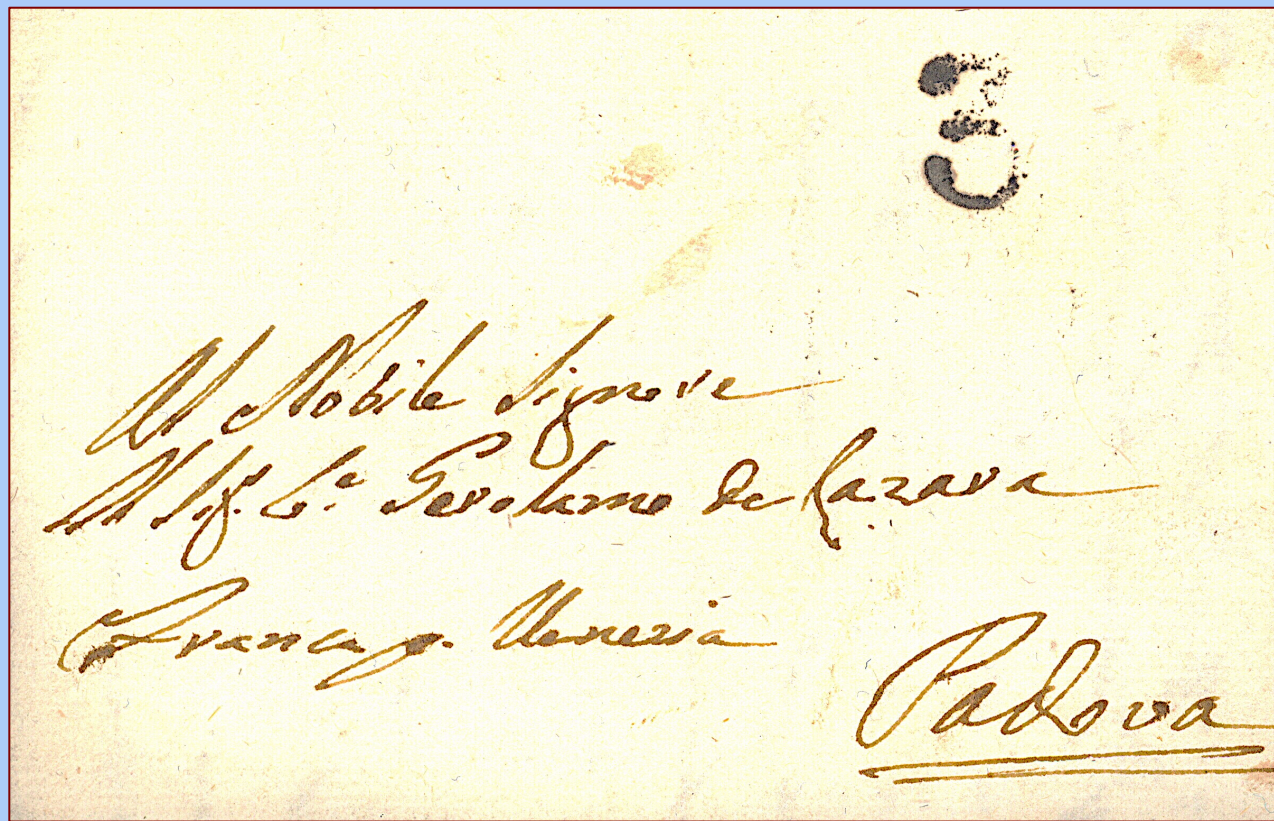 3
Al Nobile Signore
Al Sig.r C.e Gerolamo de Lazara
Franca p. Venezia
Padova